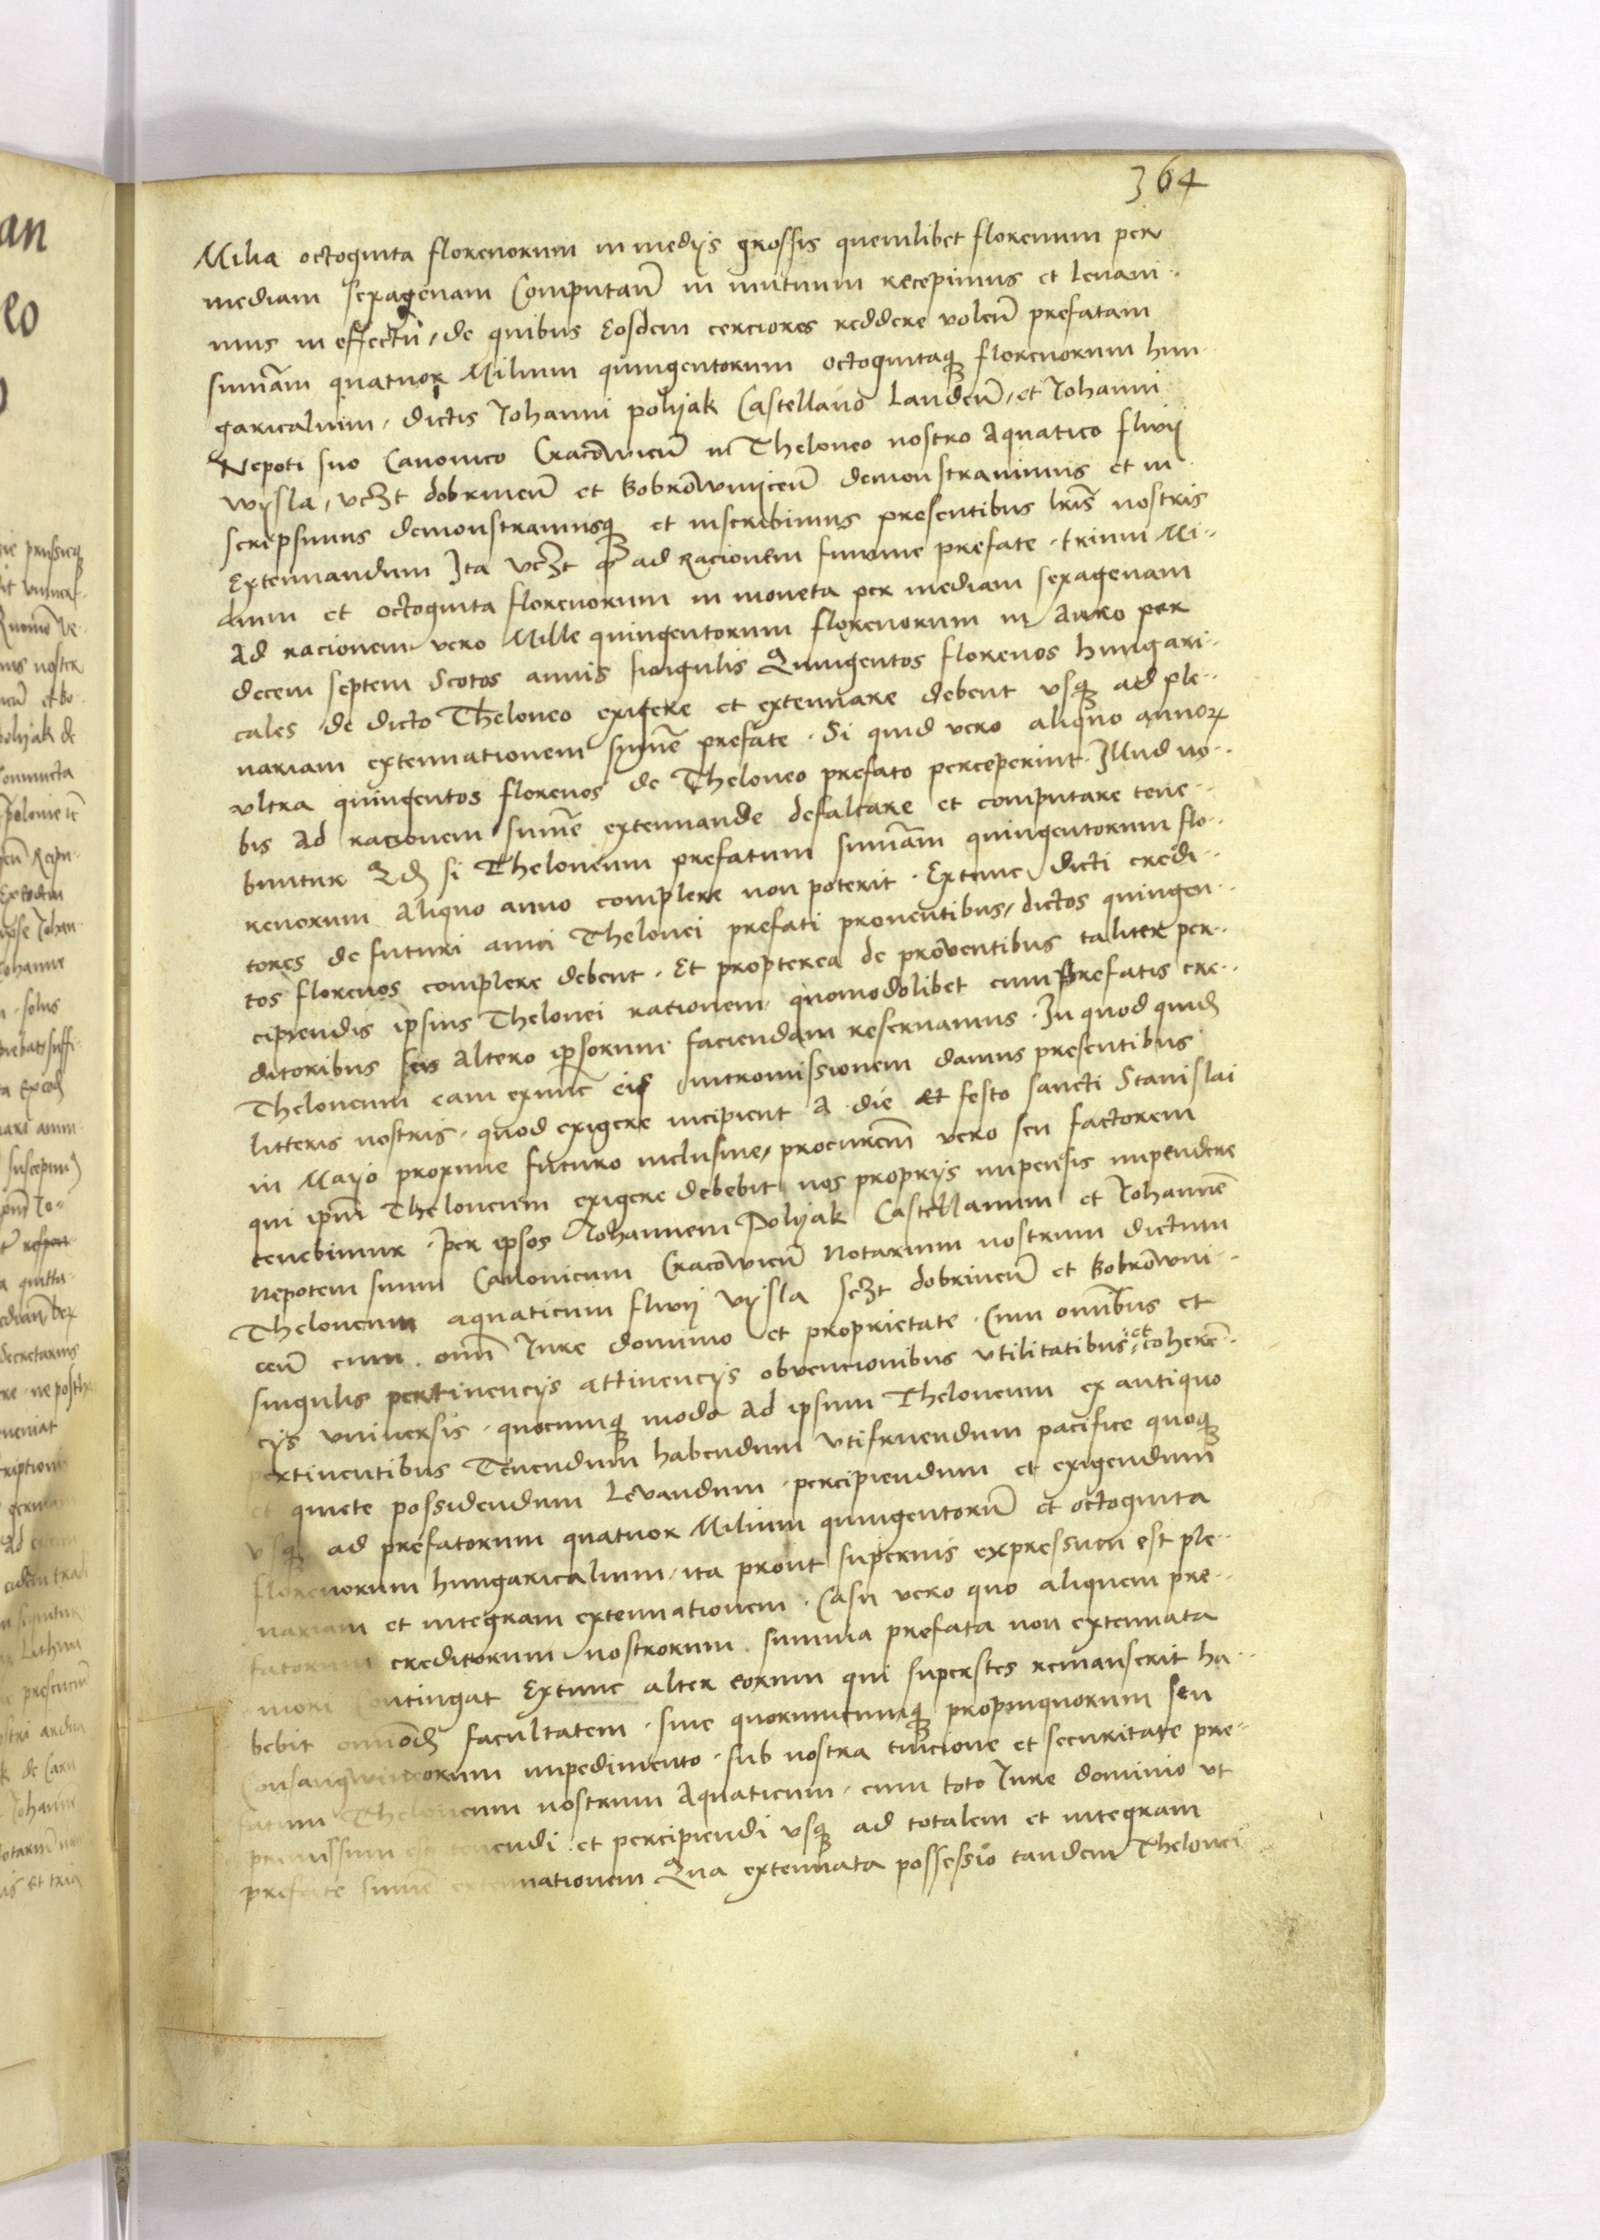 364
Milia octoginta florenorum in medijs grossis quemlibet florenum per
mediam sexagenam Computañ in mutuum recepimus et levavi-
mus in effectu, de quibus Eosdem cerciores reddere voleñ prefatam
sum̃am quatuor Milium quingentorum octogintaqꝫ florenorum hun-
garicalium, dictis Johanni poliyak Castellano Landeñ, et Johanni
Nepoti suo Canonico Cracõwieñ in Theloneo nostro Aquatico fluvij
Wysla, vcꝫt dobrineñ et Bobrõwnijceñ demonstravimus et in
scripsimus demonstramusqꝫ et inscribimus presentibus lr̃is nostris
Extenuandum Ita vcꝫt ꝙ ad Racionem summe prefate. trium Mi-
lium et octoginta florenorum in moneta per mediam sexagenam
Ad racionem vero Mille quingentorum florenorum in Auro per
decem septem Scotos annis singulis Quingentos florenos hungari-
cales de dicto Theloneo exigere et extenuare debent vsqꝫ ad ple-
nariam extenuationem sum̃e prefate. Si quid vero aliquo annoꝝ
vltra quingentos florenos de Theloneo prefato perceperint Illud no-
bis Ad racionem sum̃e extenuande defalcare et computare tene-
buntur Qđ si Theloneum prefatum sum̃am quingentorum flo-
renorum Aliquo anno complere non poterit. Extunc dicti credi-
tores de futuri anni Thelonei prefati proventibus, dictos quingen-
tos florenos complere debent. Et propterea de proventibus taliter per-
cipiendis ipsius Thelonei rationem quomodolibet cum prefatis cre-
ditoribus seu Altero ipsorum faciendam reservamus. In quod quidẽ
Theloneum eam exnunc eis intromissionem damus presentibus
litteris nostris. quod exigere incipient A die et festo sancti Stanislai
in Mayo proxime futuro inclusive, procurem̃ vero seu factorem
qui ipm̃ Theloneum exigere debebit nos proprijs impensis impendere
tenebimur. Per ipsos Johannem Poliyak Castellanum et Johannẽ
Nepotem suum Canonicum Cracõwieñ Notarium nostrum dictum
Theloneum aquaticum fluvij Vysla scꝫt dobrineñ et Bobrõwni-
ceñ cum om̃i Jure dominio et proprietate. Cum omnibus et
singulis pertinencijs attinencijs obvencionibus vtilitatibus et coherẽ-
cijs vniversis. quocumqꝫ modo Ad ipsum Theloneum ex antiquo
pertinentibus Tenendum habendum vtifruendum pacifice quoqꝫ
et quiete possidendum Levandum. percipiendum et exigendum
vsqꝫ ad prefatorum quatuor Milium quingentorũ et octoginta
florenorum hungaricalium, ita prout superius expressum est ple-
nariam et integram extenuationem. Casu vero quo aliquem pre-
fatorum creditorum nostrorum. summa prefata non extenuata
mori Contingat Extunc alter eorum qui superstes remanserit ha-
bebit omnođ facultatem. sine quorumcumqꝫ propinquorum seu
Consangwineorum impedimento. sub nostra tuicione et securitate pre-
fatum Theloneum nostrum Aquaticum. cum toto Jure dominio vt
premissum est tenendi. et percipiendi vsqꝫ ad totalem et integram
prefate sum̃e extenuationem Qua extenuata possessio tandem Thelonei